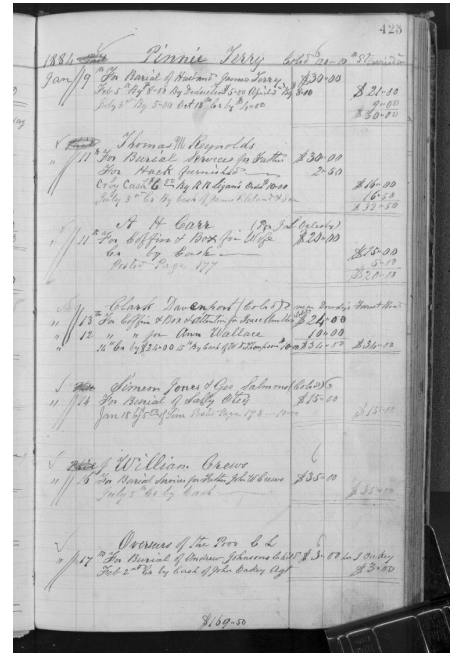 425
1884 Pinnie Terry Colod
Jan 9th For Burial of Husband James Terry $30-00
Feb 5th By 8-00 By Deduction 5-00 April By 8-00 $21-00
July 5th By 5-00 Oct 18th Cr by 4-00 9-00
$30-00
Thomas M Reynolds
" 11th For Burial Services for Father $30-00
For Hack furnished 2-50
Cr by Cash By R R 10-00 $16-00
July 3rd Cr By Cash of 16-50
$32-50
A H Carr (Per J L Oglesby)
" 11th For Coffin & Box for Wife $20-00
Cr by Cash $15-00
Posted Page 177 5-00
$20-00
Clark Davenport (Colod)
" 13th For Coffin & Box & Attention for $24-00
" 12 " " for Ann Wallace 10-00
" 24th Cr by $24-00 15th By Cash of Thompson 10-00 $34-00 $34-00
Simeon Jones & Geo Salmons (Colod)
" 14 For Burial of Sally $15-00
Jan 18 $15-00
William Crews
" 16 For Burial Services for Father John W Crews $35-00
July 5 Cr by Cash $35-00
Overseers of the Poor C L
" 17th For Burial of Andrew Johnsons Child $3-00 Oakey
Feb 2nd Cr by Cash of John Oakey Agt $3-00
$169-50